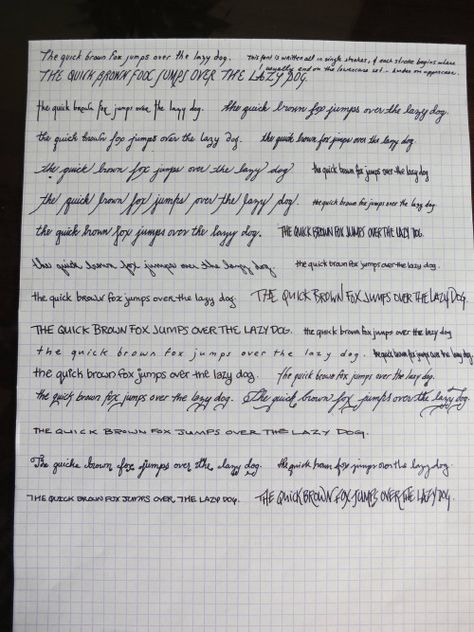 The quick brown fox jumps over the lazy dog. this font is written all in single strokes, & each stroke begins where
I usually end on the lowercase set
THE QUICK BROWN FOOX JUMPS OVER THE LAZY DOG
the quick brown fox jumps over the lazy dog. the quick brown fox jumps over the lazy dog.
the quick brown fox jumps over the lazy dog. the quick brown fox jumps over the lazy dog.
the quick brown fox jumps over the lazy dog the quick brown fox jumps over the lazy dog
the quick brown fox jumps over the lazy dog. the quick brown fox jumps over the lazy dog.
the quick brown fox jumps over the lazy dog. THE QUICK BROWN FOX JUMPS OVER THE LAZY DOG.
the quick brown fox jumps over the lazy dog the quick brown fox jumps over the lazy dog.
the quick brown fox jumps over the lazy dog. THE QUICK BROWN FOX JUMPS OVER THE LAZY DOG.
THE QUICK BROWN FOX JUMPS OVER THE LAZY DOG. the quick brown fox jumps over the lazy dog
the quick brown fox jumps over the lazy dog. the quick brown fox jumps over the lazy dog
the quick brown fox jumps over the lazy dog. The quick brown fox jumps over the lazy dog.
the quick brown fox jumps over the lazy dog. The quick brown fox jumps over the lazy dog.
THE QUICK BROWN FOX JUMPS OVER THE LAZY DOG.
The quick brown fox jumps over the lazy dog. the quick brown fox jumps over the lazy dog.
THE QUICK BROWN FOX JUMPS OVER THE LAZY DOG. THE QUICK BROWN FOX JUMPS OVER THE LAZY DOG.